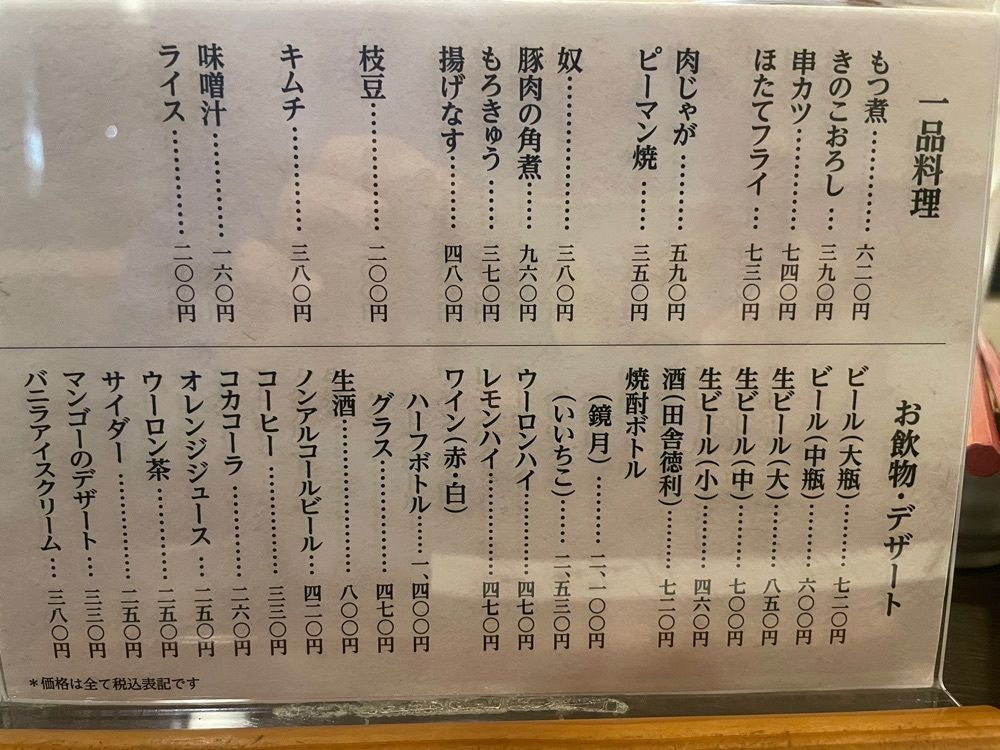 一品料理
もつ煮…………六二〇円
きのこおろし…三九〇円
串カツ…………七四〇円
ほたてフライ…七三〇円
肉じゃが………五九〇円
ピーマン焼……三五〇円
奴………………三八〇円
豚肉の角煮……九六〇円
もろきゅう……三七〇円
揚げなす………四八〇円
枝豆……………二〇〇円
キムチ…………三八〇円
味噌汁…………一六〇円
ライス…………二〇〇円
お飲物・デザート
ビール(大瓶)………七二〇円
ビール(中瓶)………六〇〇円
生ビール(大)………八五〇円
生ビール(中)………七〇〇円
生ビール(小)………四六〇円
酒(田舎徳利)………七二〇円
焼酎ボトル
(鏡月)………二、一〇〇円
(いいちこ)……二、五三〇円
ウーロンハイ…………四七〇円
レモンハイ……………四七〇円
ワイン(赤・白)
ハーフボトル…一、四〇〇円
グラス…………四七〇円
生酒……………………八〇〇円
ノンアルコールビール…四二〇円
コーヒー………………三三〇円
コカコーラ……………二六〇円
オレンジジュース……二五〇円
ウーロン茶……………二五〇円
サイダー………………二五〇円
マンゴーのデザート…三三〇円
バニラアイスクリーム…三八〇円
*価格は全て税込表記です